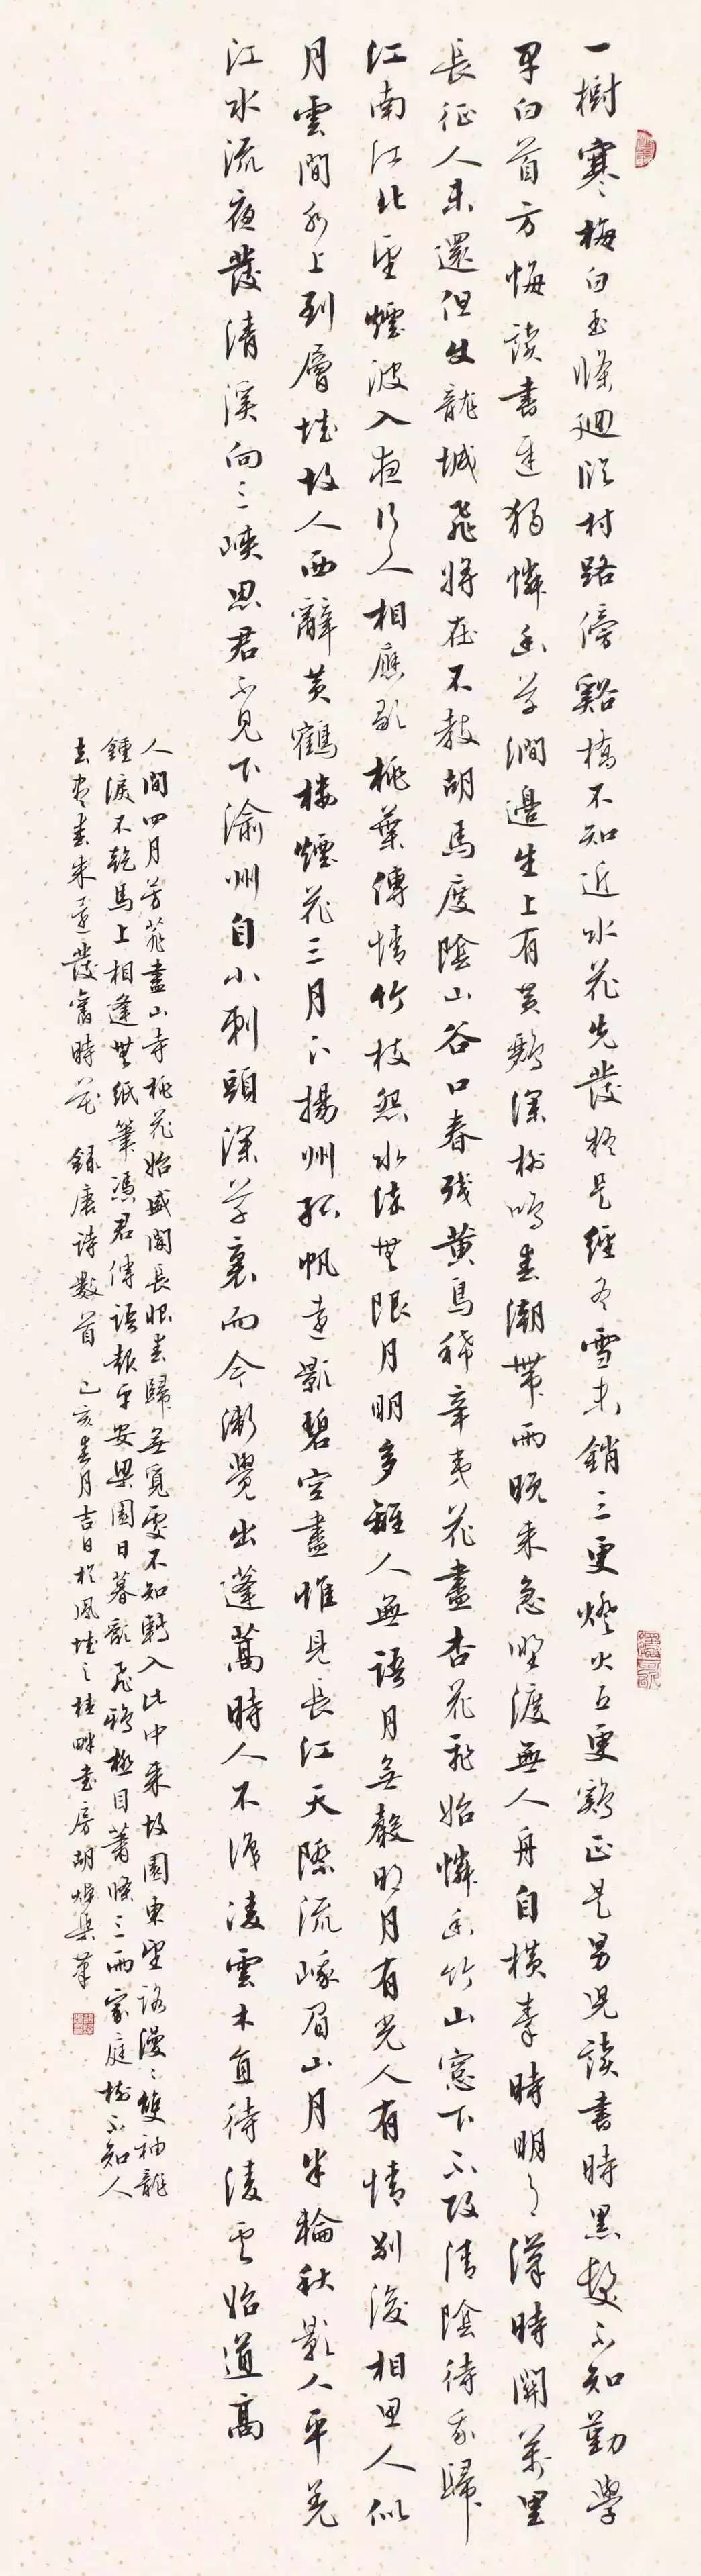 一樹寒梅白玉條迴臨村路傍谿橋不知近水花先發疑是經冬雪未銷三更燈火五更鷄正是男児讀書時黑髮不知勤學
早白首方悔讀書遲獨憐幽草澗邊生上有黄鸝深樹鳴春潮帶雨晚来急野渡無人舟自横秦時明月漢時關萬里
長征人未還但使龍城飛將在不教胡馬度陰山谷口春殘黄鳥稀辛夷花盡杏花飛始憐幽竹山窓下不改清陰待我歸
江南江北望煙波入夜行人相應歌桃葉傳情竹枝怨水流無限月明多離人無語月無聲明月有光人有情别後相思人似
月雲間水上到層城故人西辭黄鶴樓煙花三月下揚州孤帆遠影碧空盡惟見長江天際流峨眉山月半輪秋影入平羌
江水流夜發清溪向三峽思君不見下渝州自小刺頭深草裏而今漸覺出蓬蒿時人不識凌雲木直待凌雲始道高
人間四月芳菲盡山寺桃花始盛開長恨春歸無覓處不知轉入此中来故園東望路漫漫雙袖龍
鍾淚不乾馬上相逢無紙筆憑君傳語報平安梁園日暮亂飛鴉極目蕭條三兩家庭樹不知人
去盡春来還發舊時花 錄唐詩數首 己亥春月吉日於鳳城之桂畔書房胡